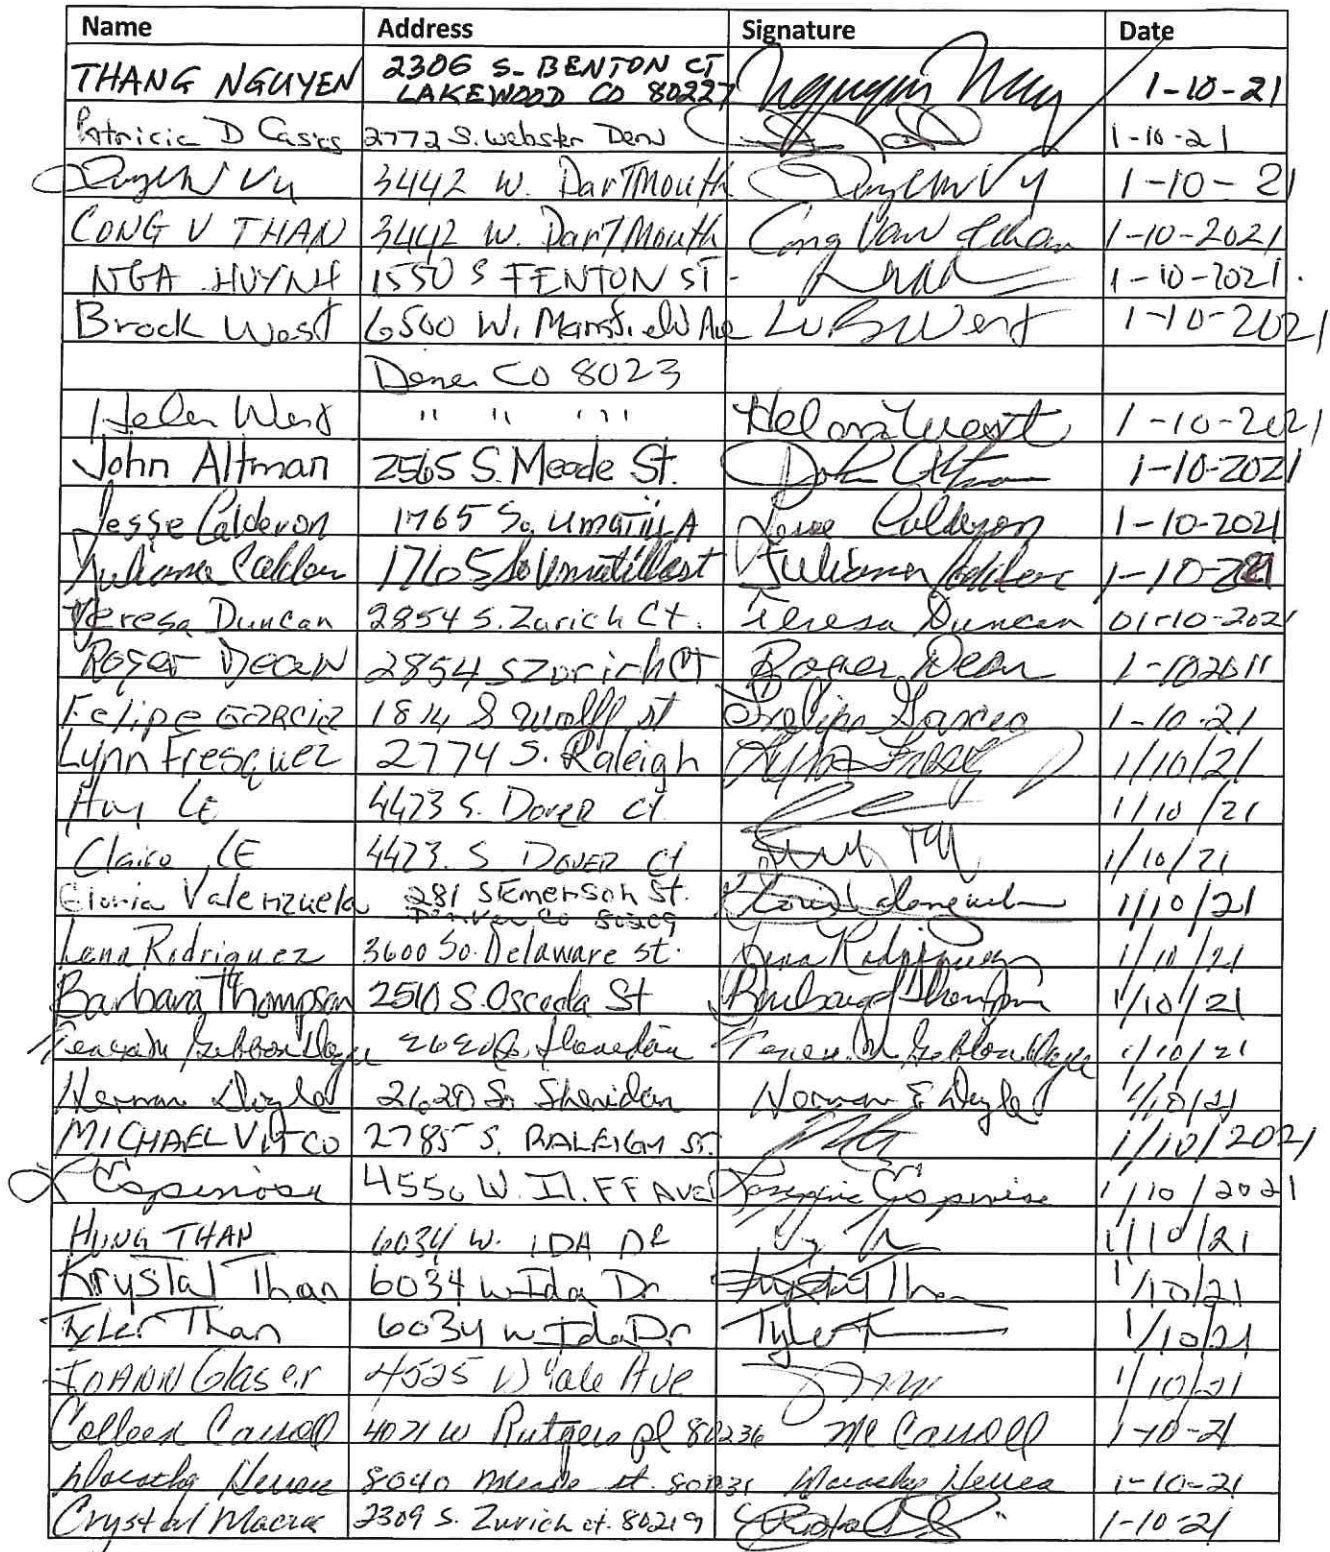 Name Address Signature Date
THANG NGUYEN 2306 S. BENTON CT Nguyen 1-10-21
LAKEWOOD CO 80227
Patricia D Casias 2772 S. Webster Denv 1-10-21
Vu 3442 W. DarTMouth Vy 1-10-21
CONG V THAN 3442 W. DarTMouth Cong Van Than 1-10-2021
NGA HUYNH 1550 S FENTON ST 1-10-2021.
Brock West 6500 W. Mansfield Ave West 1-10-2021
CO 8023
Helen West " " " " Helen West 1-10-2021
John Altman 2565 S. Meade St. John Altman 1-10-2021
Jesse Calderon 1765 So. UmatillA Jesse Calderon 1-10-2021
1765 So Umatilla st 1-10-2021
Teresa Duncan 2854 S. Zurich Ct. Teresa Duncan 01-10-2021
Roger Dean 2854 S Zurich CT Roger Dean
Felipe Garcia 1814 S Wolff st Felipe Garcia 1-10-21
Lynn Fresquez 2774 S. Raleigh 1/10/21
Huy LE 4473 S. DOVER Ct 1/10/21
Claire LE 4473. S DOVER Ct 1/10/21
Gloria Valenzuela 281 S Emerson St. Gloria Valenzuela 1/10/21
Denver Co 80209
Lena Rodriguez 3600 So. Delaware st. Lena Rodriguez 1/10/21
Barbara Thompson 2510 S. Osceola St Barbara Thompson 1/10/21
1/10/21
Norman Doyle 2620 So Sheridan Norman E Doyle 1/10/21
MICHAEL VITCO 2785 S. RALEIGH ST. 1/10/2021
Espinosa W. ILIFF AVE Espinosa 1/10/2021
HUNG THAN 6034 W. IDA DR 1/10/21
Krystal Than 6034 W Ida Dr Krystal Than 1/10/21
Tyler Than 6034 W Ida Dr Tyler T 1/10/21
JOANN Glaser 4525 W Yale Ave 1/10/21
Colleen Carroll 4071 W Rutgers pl 80236 M C Carroll 1-10-21
8040 Meade st. 80031 1-10-21
Crystal 2309 S. Zurich ct. 80219 1-10-21